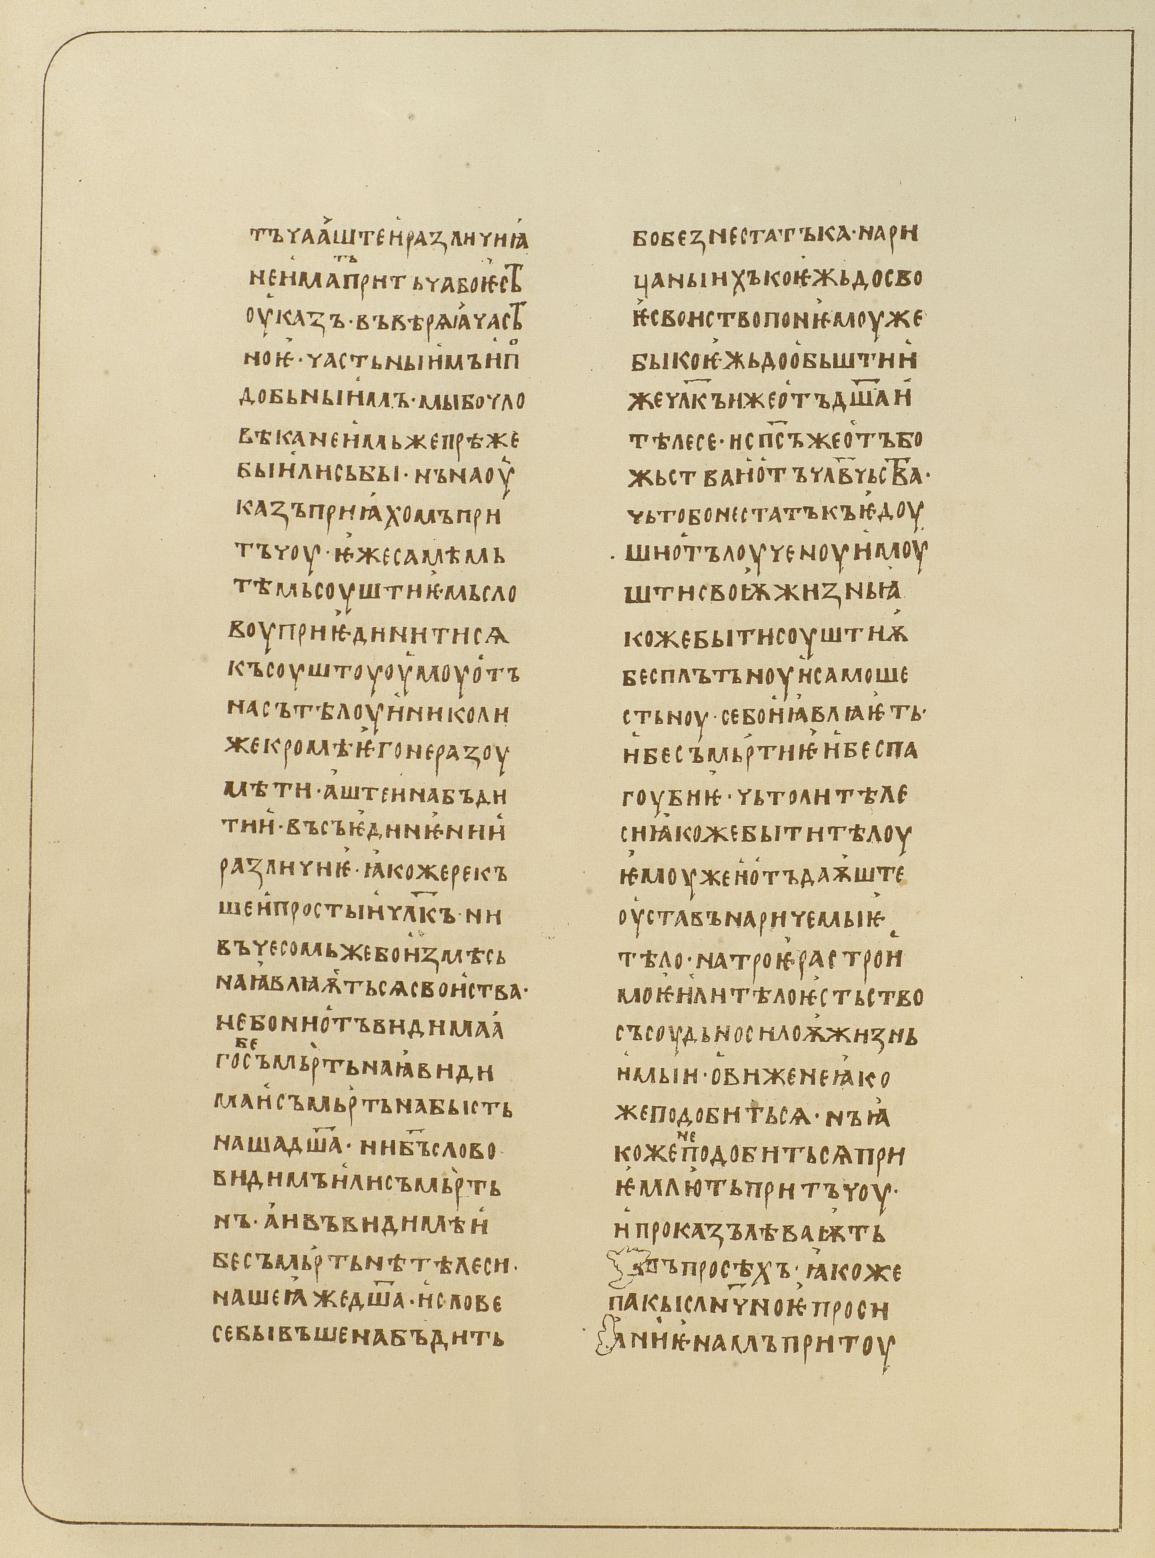 тъчааштеиразличиꙗ
неиматъпритьчабоѥст
оуказъ·въвѣрѧꙗчаст
ноѥ·частьныимъипо
добьныимъ·мыбочло
вѣканеимьжепрѣже
быилисьбы·нънаоу
казъприꙗхомъпри
тъчоу·ѥжесамѣмь
тѣмьсоуштиѥмьсло
воуприѥдинитисѧ
късоуштоуоумоуотъ
насътѣлоуининколи
жекромѣѥгонеразоу
мѣти·аштеинабъди
тии·въсъѥдинѥнии
различиѥ·ꙗкожерекъ
шеипростыичлкъ·ни
въчесомьжебоизмѣсь
наꙗвлꙗѭтьсѧсвоиства·
небонионотъвидимаа
гобесъмьртьнаꙗвиди
маисъмьртьнабысть
нашадша·нибъслово
видимъилисъмьрть
нъ·аивъвидимѣи
бесъмьртьнѣтѣлеси·
нашеꙗжедша·ислове
себывъшенабъдить
бобезнестатъка·нари
цаныихъкоѥжьдосво
ѥсвоиствопонѥмоуже
быкоѥжьдообьштии
жечлкъижеотъдшаи
тѣлесе·испсъжеотъбо
жьстваиотъчлвчьства·
чьтобонестатъкъѥдоу
шиотълоученоуимоу
штисвоѩжизньꙗ
кожебытисоуштиѭ
бесплътьноуисамоше
стьноу·себоиꙗвлꙗѥть·
ибесъмьртиѥибеспа
гоубиѥ·чьтолитѣле
сиꙗкожебытитѣлоу
ѥмоужеиотъдаѭште
оуставънаричемыѥ
тѣло·натроѥрастрои
моѥилитѣлоѥстьство
съсоудьносилоѭжизнь
имыи·овиженеꙗко
жеподобитьсѧ·нъꙗ
коженеподобитьсѧпри
ѥмлютьпритъчоу·
ипроказълѣваѭть
въпросѣхъ·ꙗкоже
пакыслично­ѥпроси
лниѥнамъпритоу